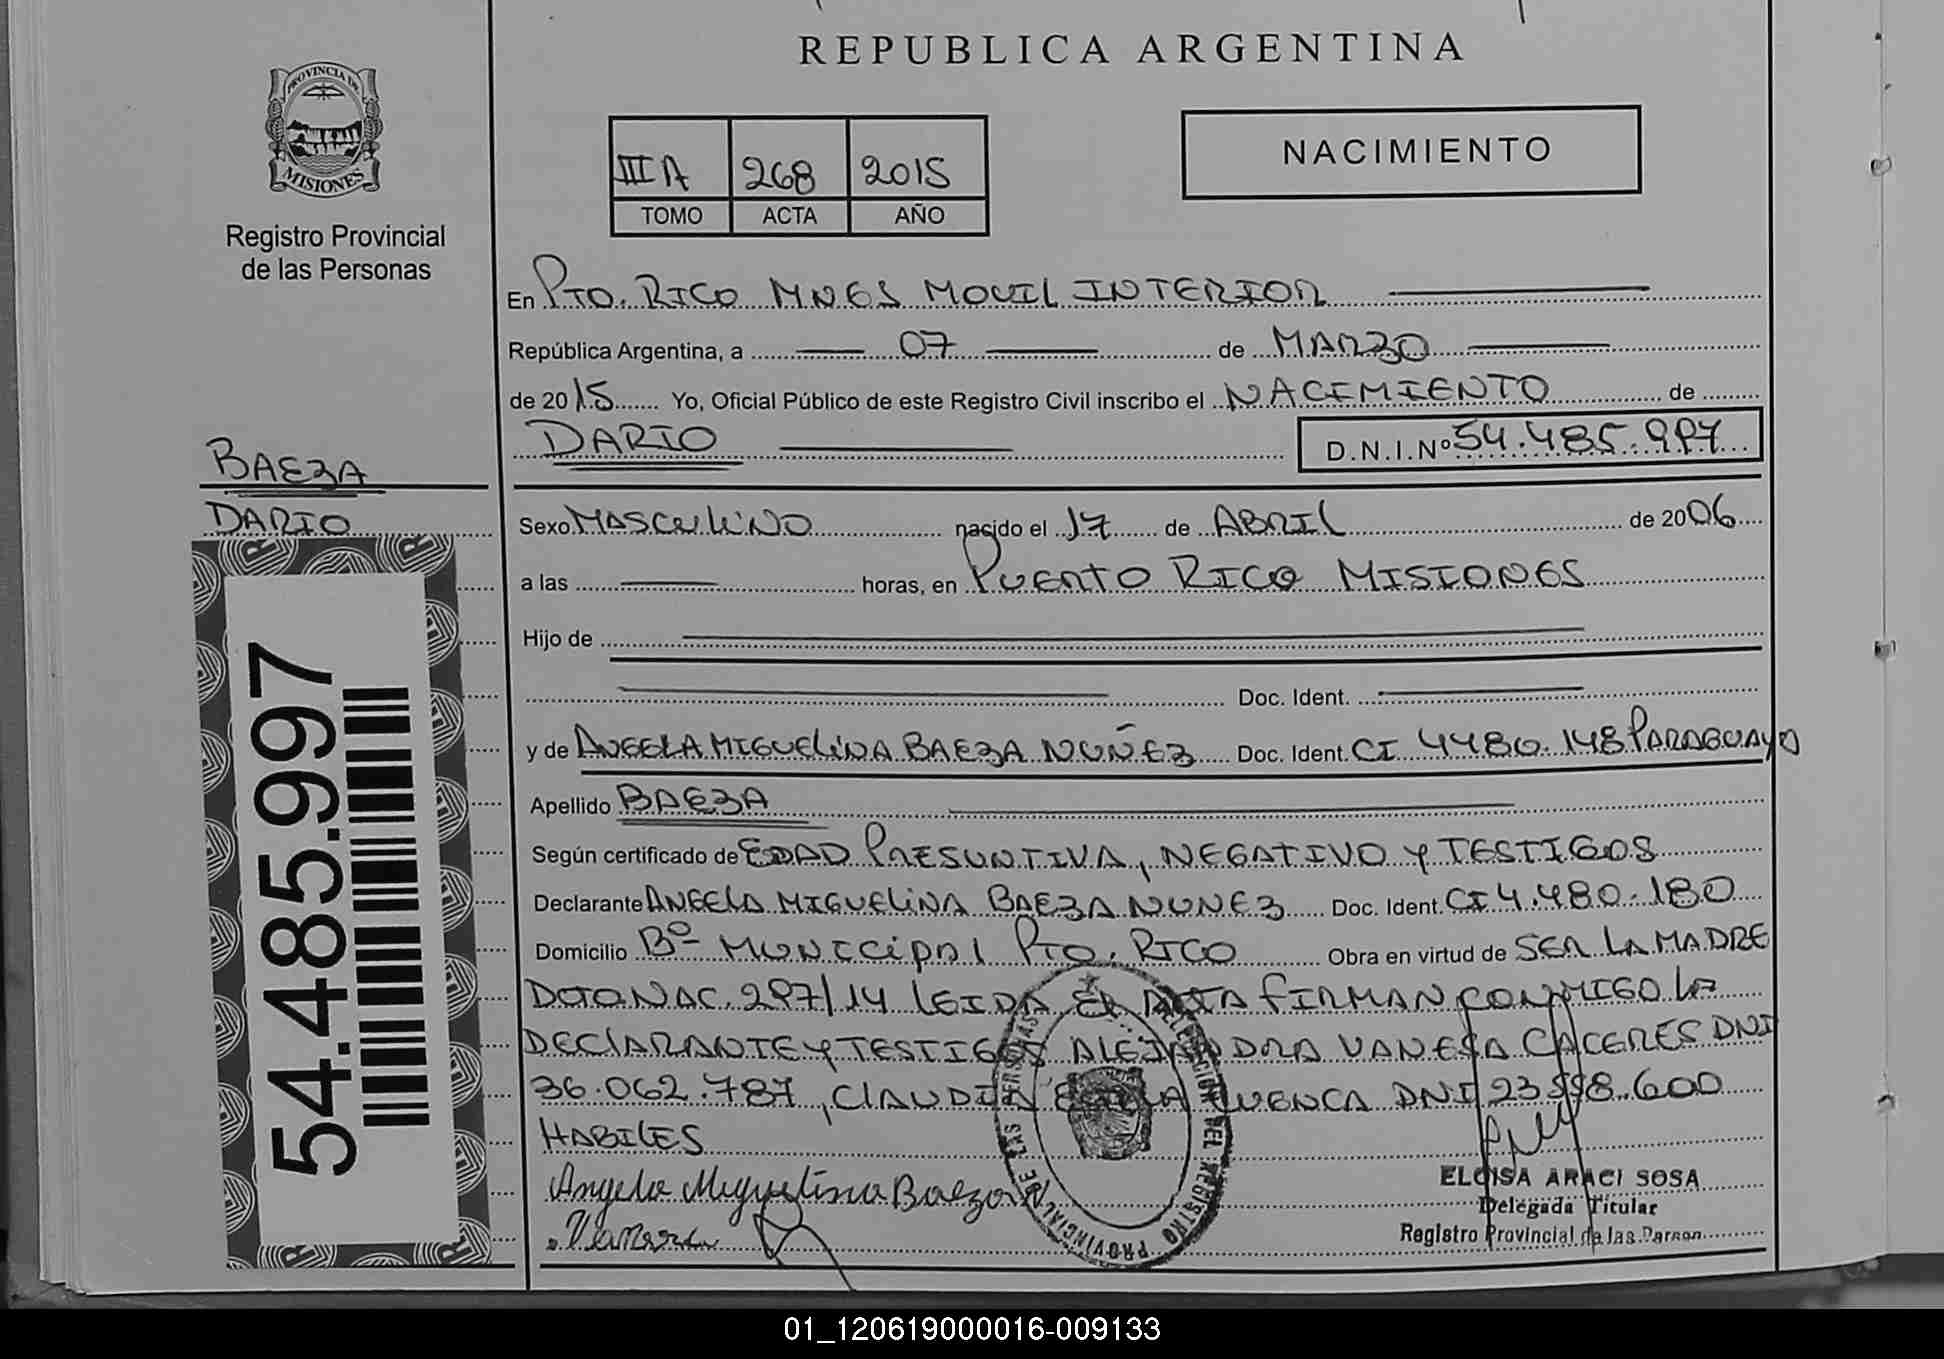 REPUBLICA ARGENTINA
PROVINCIA DE
MISIONES
Registro Provincial
de las Personas
III A 268 2015
TOMO ACTA AÑO
NACIMIENTO
En Pto. RICO MNES MOVIL INTERIOR
República Argentina, a 07 de MARZO
de 2015 Yo, Oficial Público de este Registro Civil inscribo el NACIMIENTO de
DARIO D.N.I.Nº 54.485.997
BAEZA
DARIO
Sexo MASCULINO nacido el 17 de ABRIL de 2006
a las horas, en PUERTO RICO MISIONES
Hijo de
Doc. Ident.
y de ANGELA MIGUELINA BAEZA NUÑEZ Doc. Ident. CI 4480.148 PARAGUAYO
Apellido BAEZA
Según certificado de EDAD PRESUNTIVA, NEGATIVO Y TESTIGOS
Declarante ANGELA MIGUELINA BAEZA NUNEZ Doc. Ident. CI 4.480.180
Domicilio Bº MUNICIPAL Pto. RICO Obra en virtud de SER LA MADRE
DCTO NAC. 297/14 LEIDA EL ACTA FIRMAN CONMIGO LA
DECLARANTE Y TESTIGOS ALEJANDRA VANESA CACERES DNI
36.062.787, CLAUDIA CUENCA DNI 23.998.600
HABILES
Angela Miguelina Baeza N
Vanesa
ELOISA ARACI SOSA
Delegada Titular
Registro Provincial de las Person
54.485.997
01_120619000016-009133